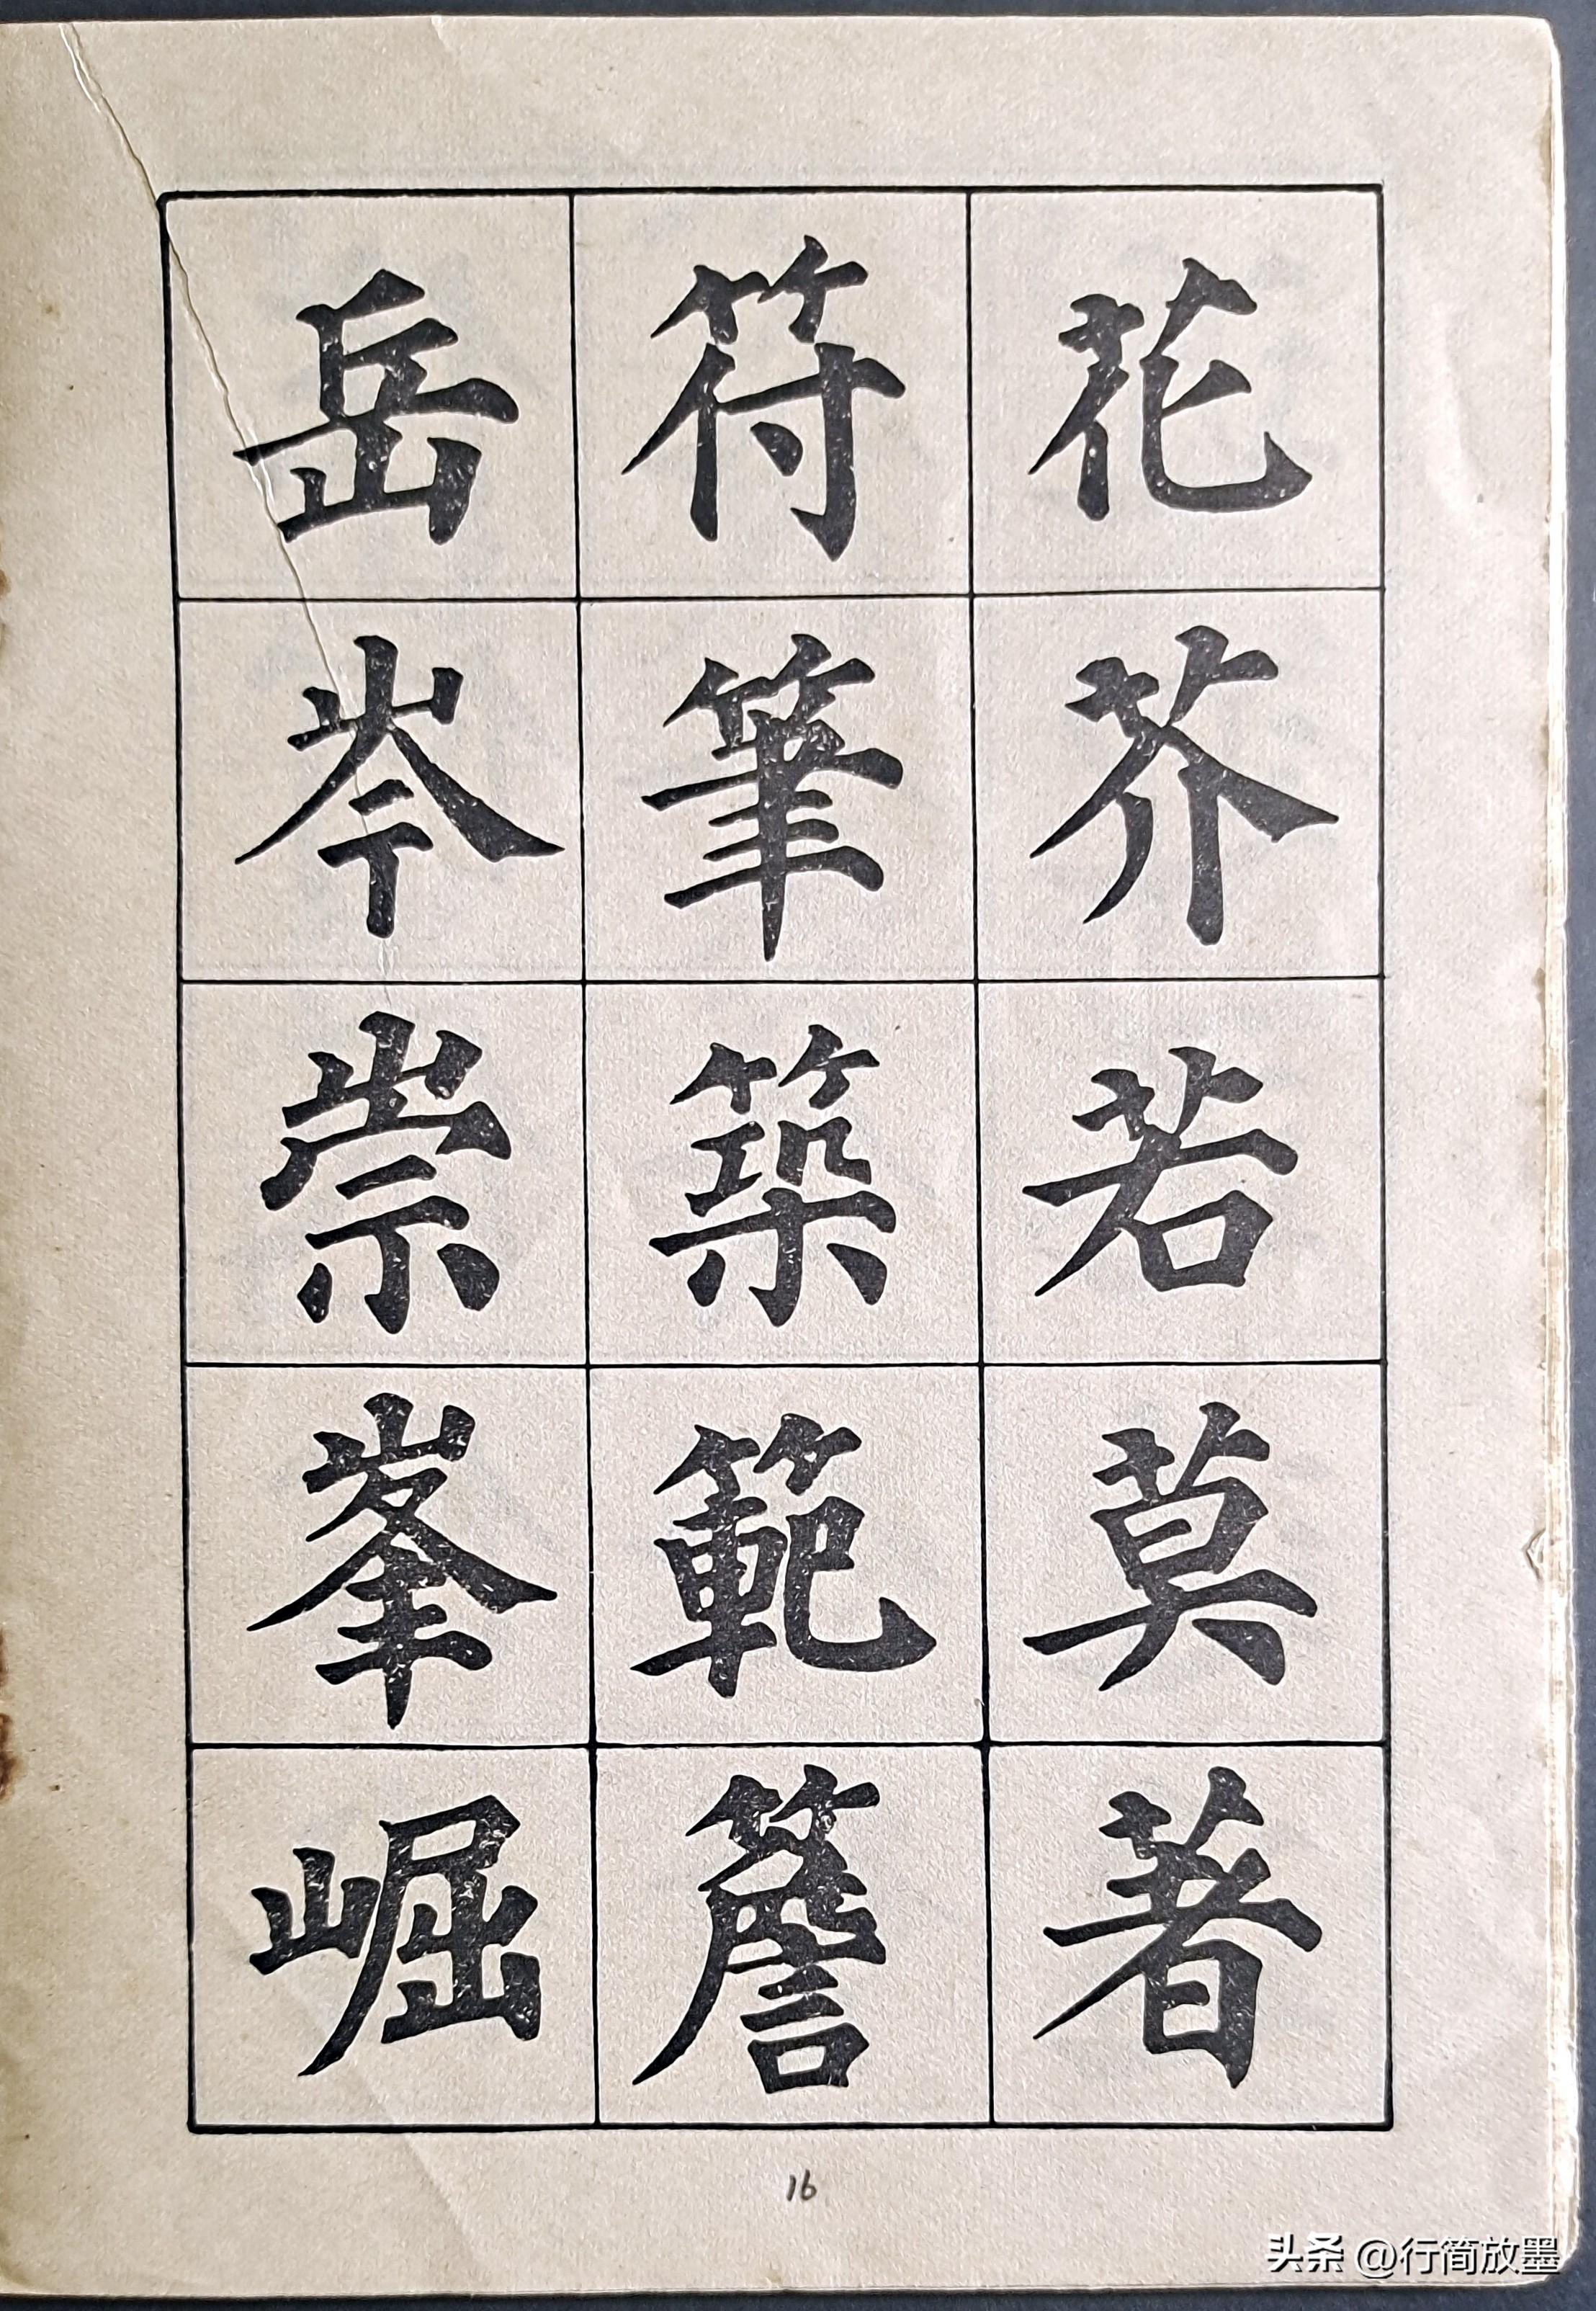 花芥若莫著
符筆築範簷
岳岑崇峯崛
16
头条 @行简放墨